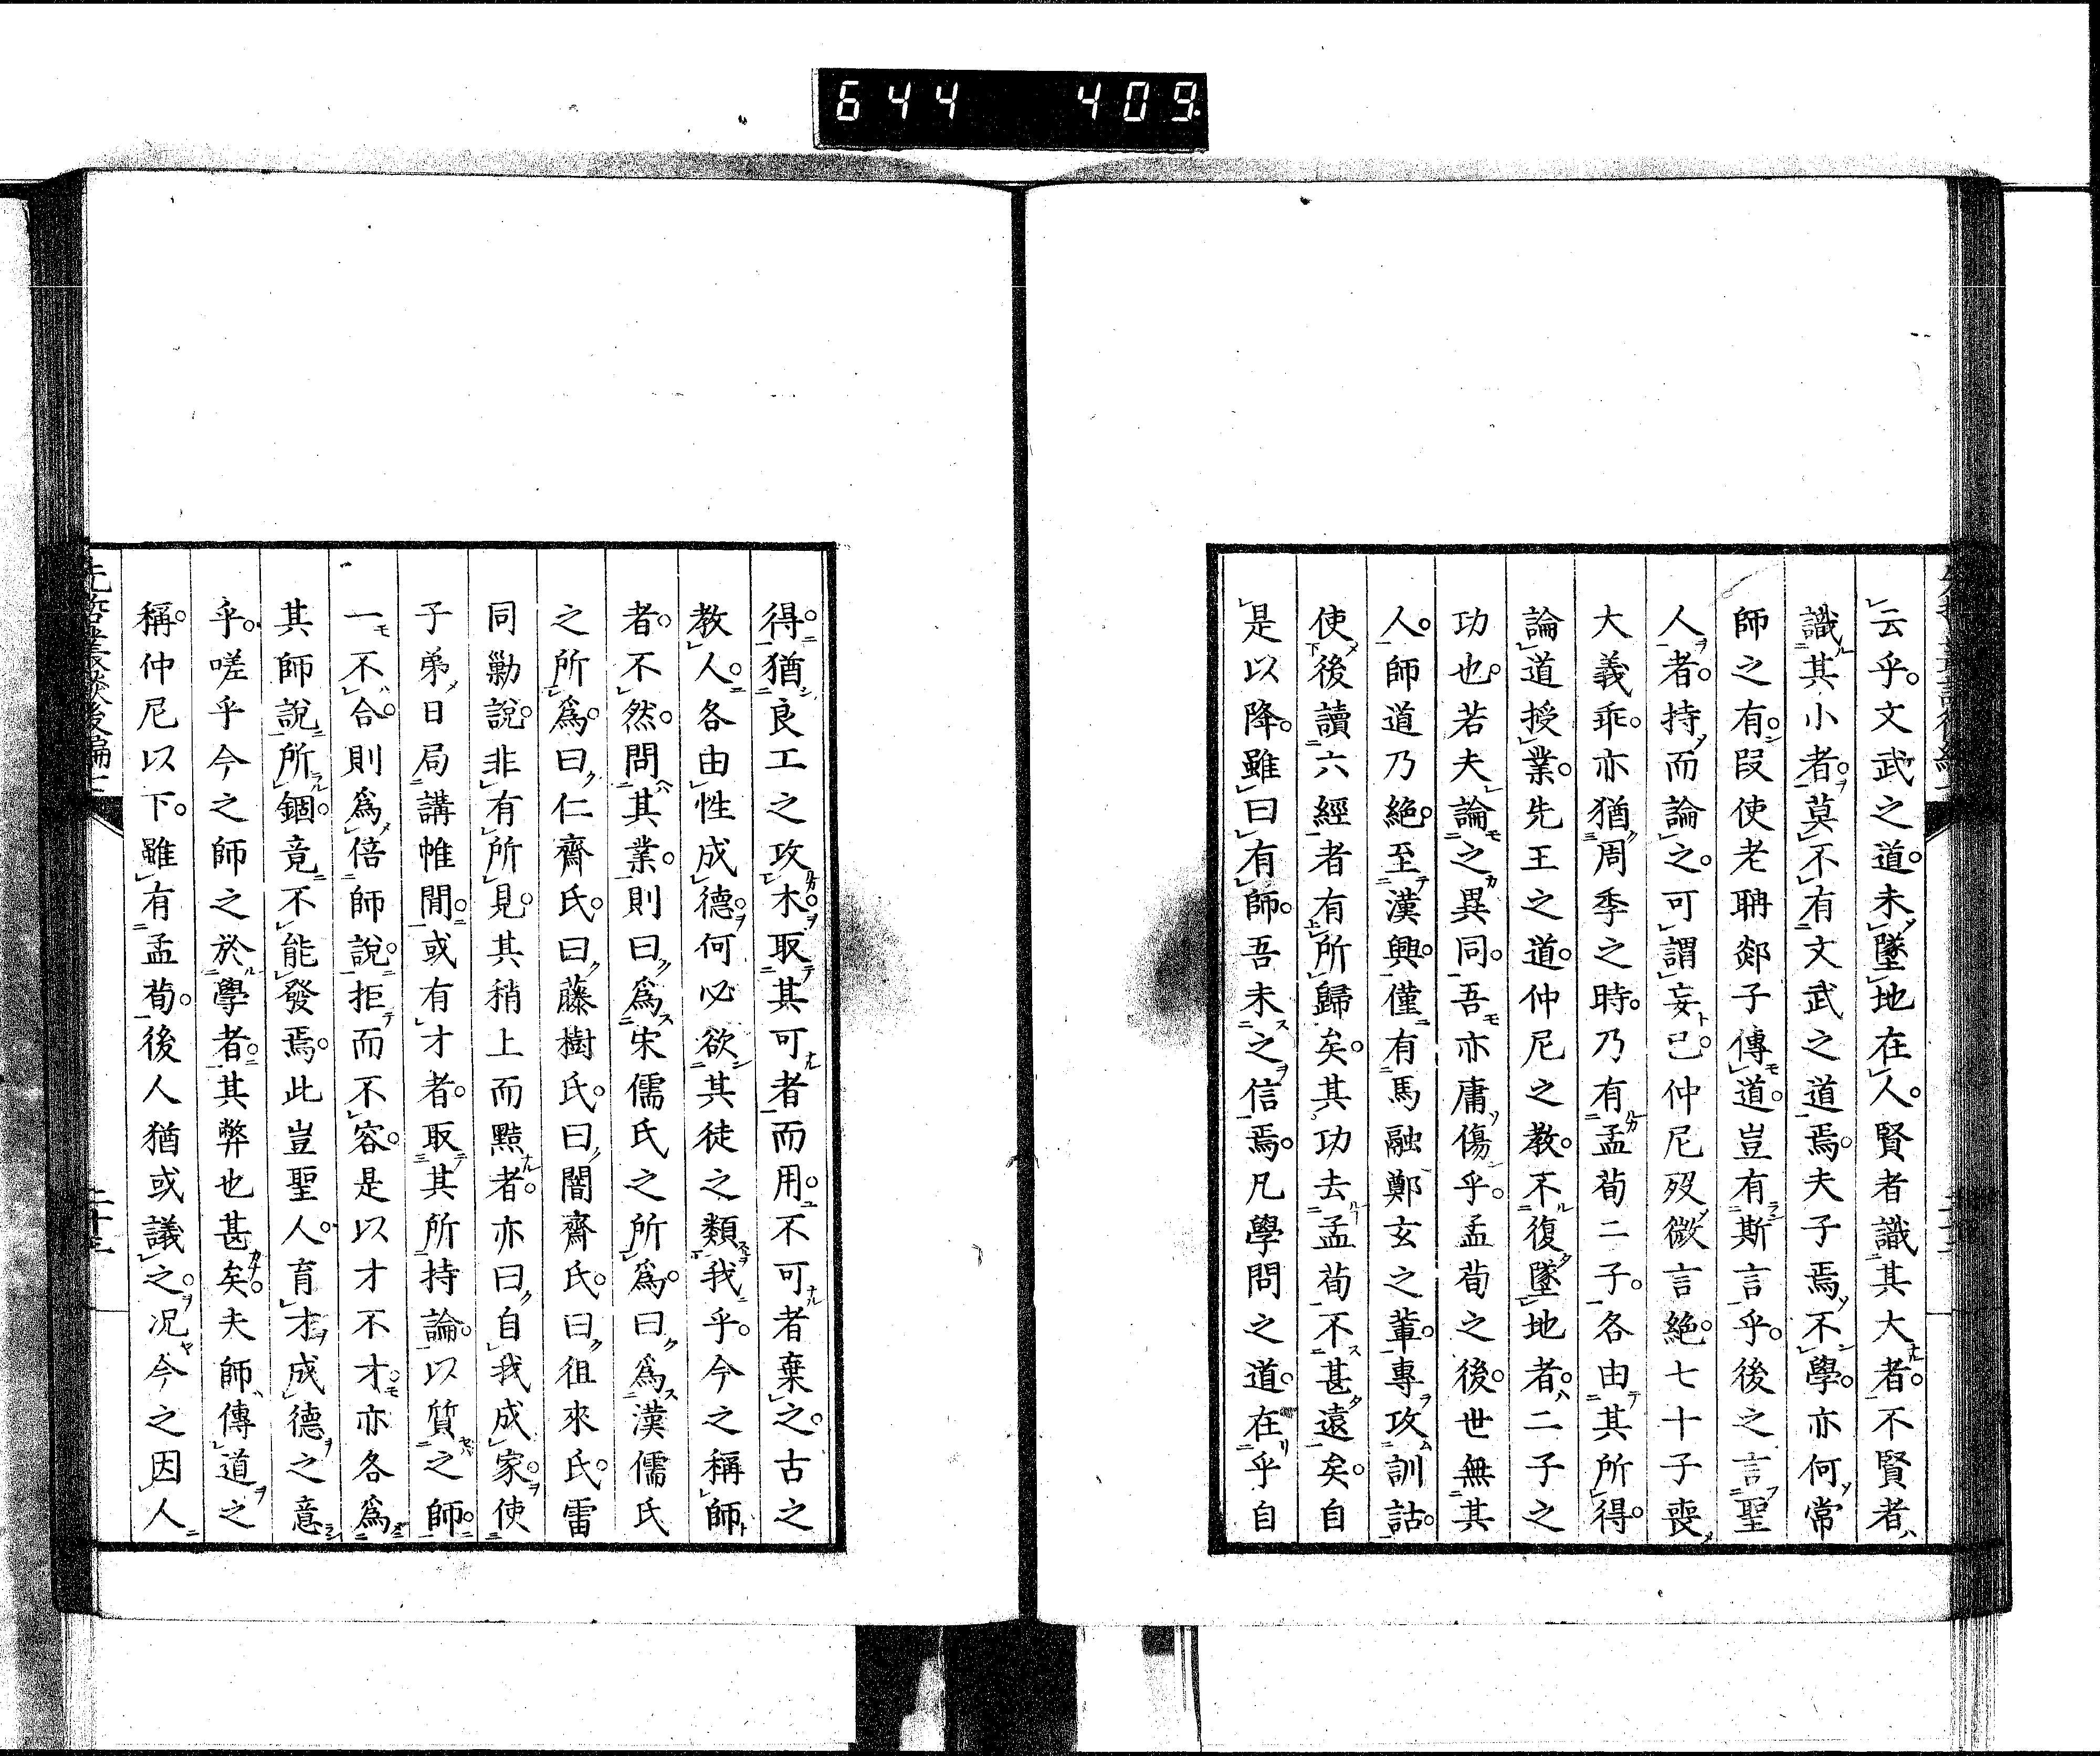 644 409
云乎。文武之道。未墜地在人。賢者識其大者。不賢者
識其小者。莫不有文武之道焉。夫子焉不學。亦何常
師之有。叚使老聃郯子傳道。豈有斯言乎。後之言聖
人者。持而論之。可謂妄已。仲尼歿微言絶。七十子喪
大義乖。亦猶周季之時。乃有孟荀二子。各由其所得。
論道授業。先王之道。仲尼之教。不復墜地者。二子之
功也。若夫論之異同。吾亦庸傷乎。孟荀之後。世無其
人。師道乃絶。至漢興。僅有馬融鄭玄之輩。專攻訓詁。
使後讀六經者有所歸矣。其功去孟荀不甚遠矣。自
是以降。雖曰有師。吾未之信焉。凡學問之道。在乎自
得。猶良工之攻木。取其可者而用。不可者棄之。古之
教人。各由性成德。何必欲其徒之類我乎。今之稱師
者。不然。問其業。則曰爲宋儒氏之所爲。曰爲漢儒氏
之所爲。曰仁齋氏。曰藤樹氏。曰闇齋氏。曰徂來氏。雷
同勦說。非有所見。其稍上而黠者。亦曰自我成家。使
子弟日局講帷間。或有才者。取其所持論。以質之師。
一不合。則爲倍師說。拒而不容。是以才不才。亦各爲
其師說所錮。竟不能發焉。此豈聖人。育才成德之意
乎。嗟乎今之師之於學者。其弊也甚矣。夫師傳道之
稱。仲尼以下。雖有孟荀。後人猶或議之。况今之因人